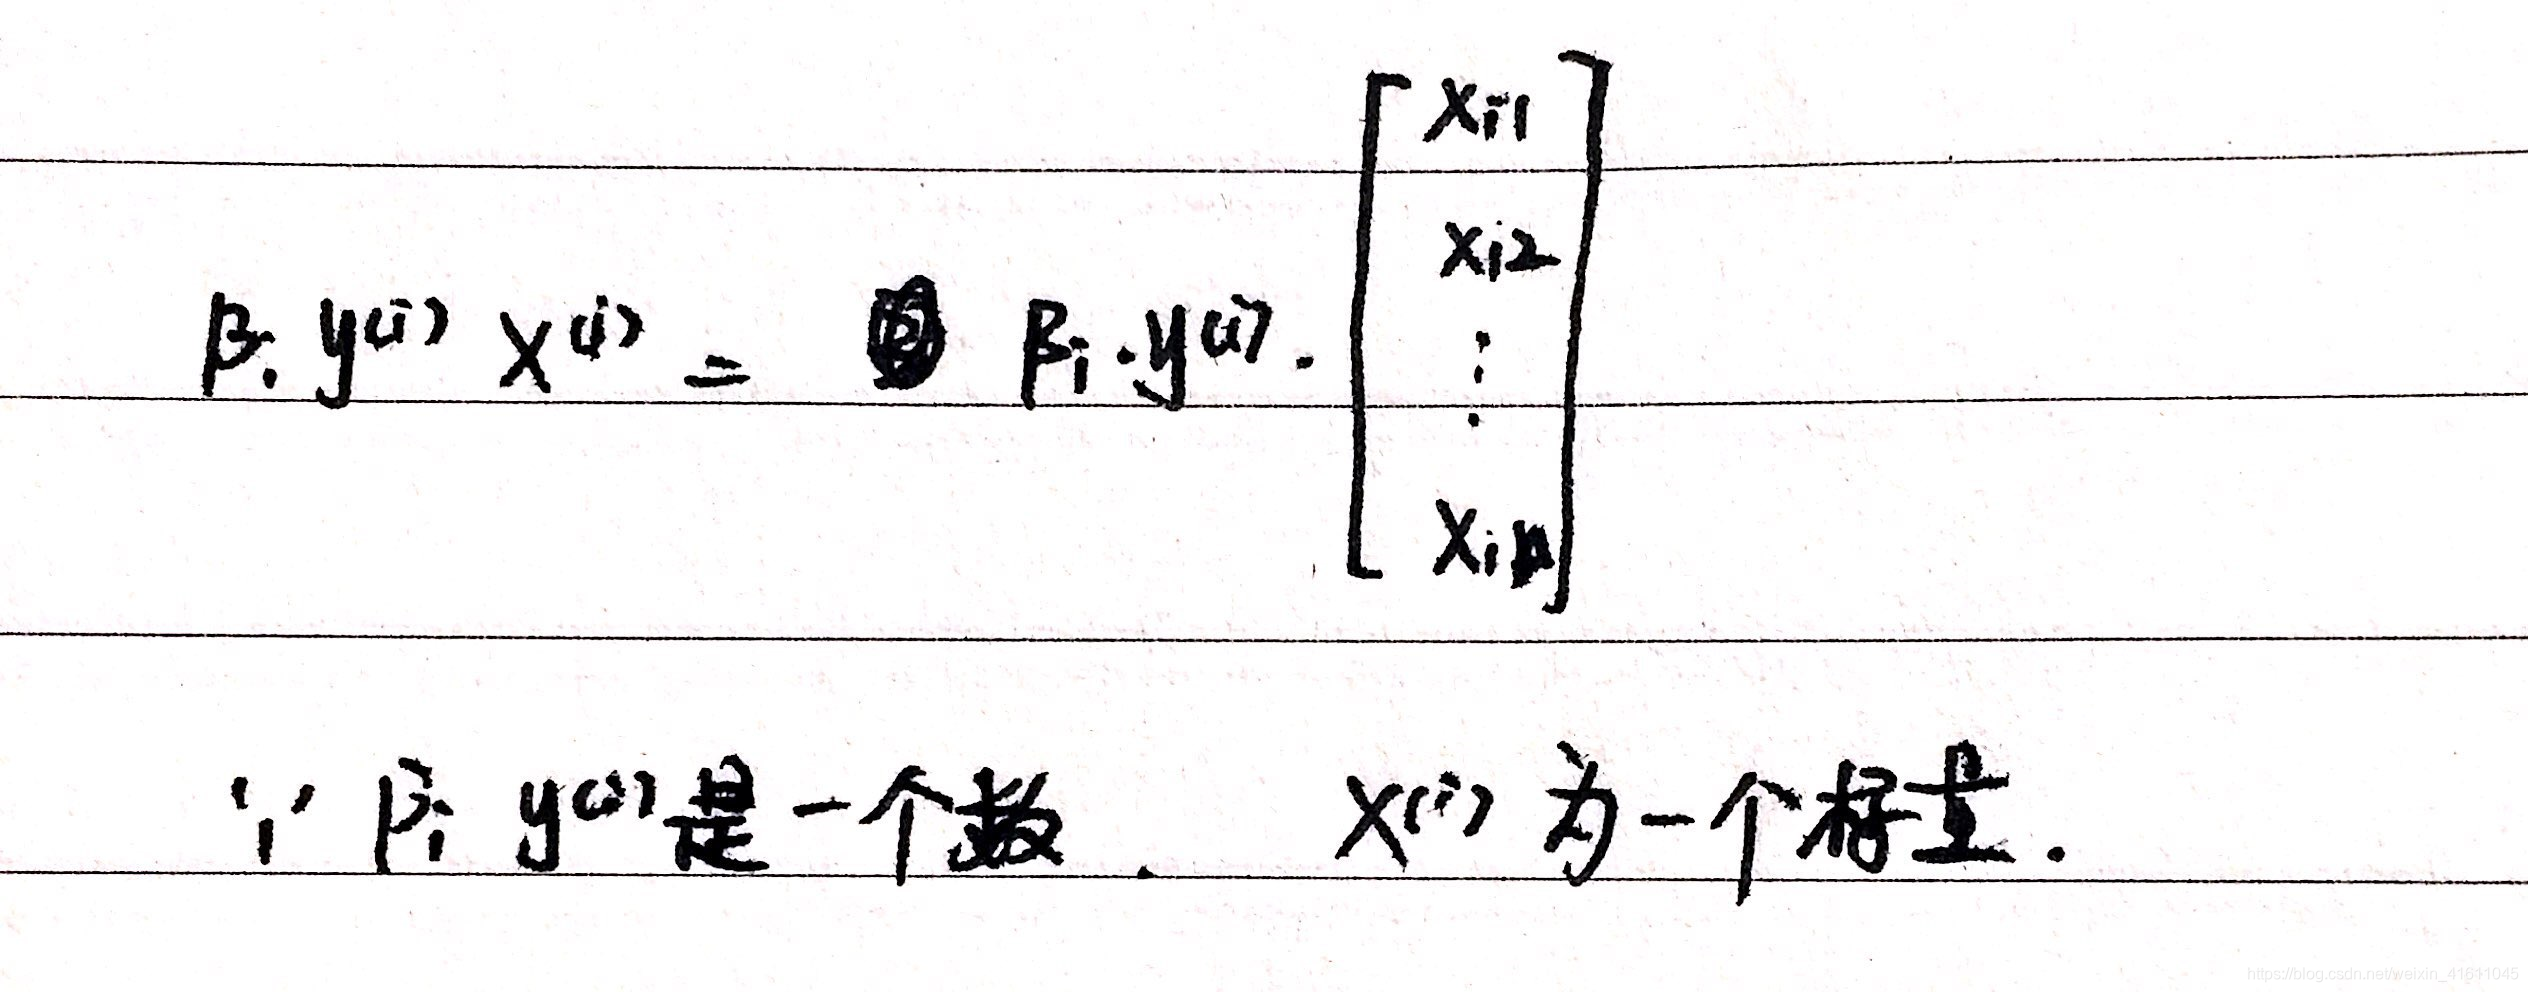 βi y⁽ⁱ⁾ x⁽ⁱ⁾ = βi · y⁽ⁱ⁾ · [xi1 xi2 ⋮ xin]
∵ βi y⁽ⁱ⁾是一个数. x⁽ⁱ⁾为一个标量.
https://blog.csdn.net/weixin_41611045